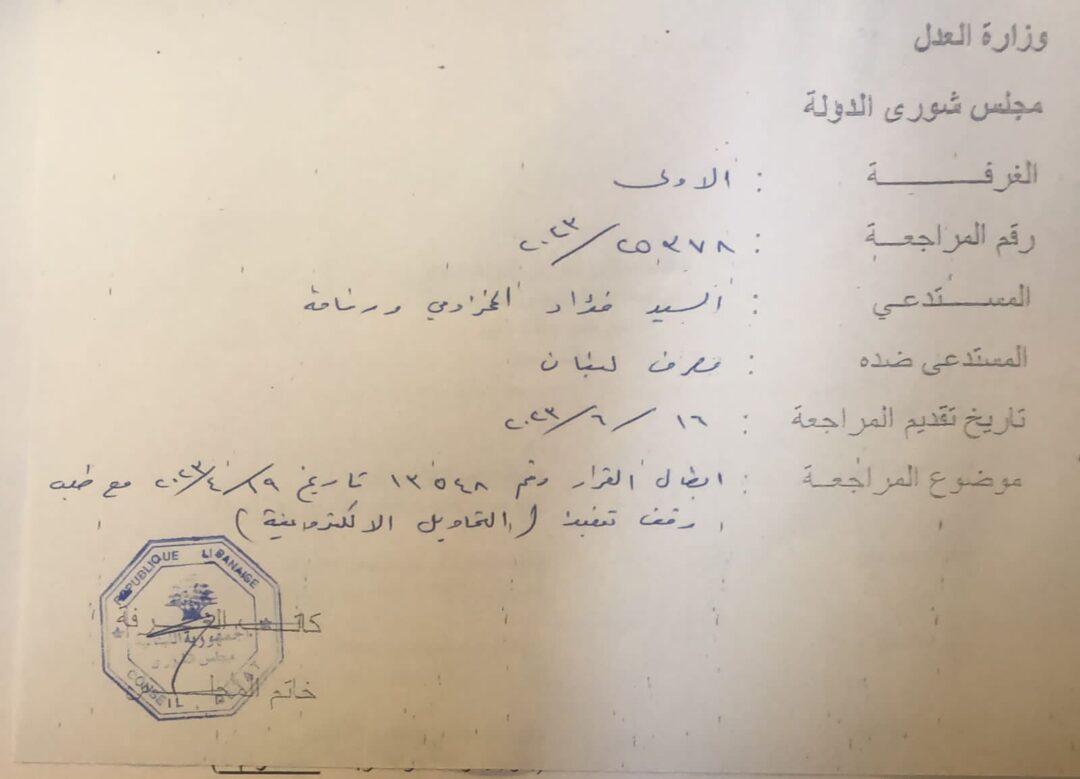 وزارة العدل
مجلس شورى الدولة
الغرفـــــــة : الاولى
رقم المراجعـة : ٢٥٣٧٨/٢٠٢٣
المســـتدعي : السيد فؤاد المخزومي ورفاقه
المستدعى ضده : مصرف لبنان
تاريخ تقديم المراجعة : ١٦/٦/٢٠٢٣
موضوع المراجعـة : ابطال القرار رقم ١٣٥٤٨ تاريخ ١٩/٤/٢٠٢٣ مع طلب
وقف تنفيذ (التحاويل الالكترونية)
REPUBLIQUE LIBANAISE
كاتـــب الغـــرفة
الجمهورية اللبنانية
مجلس شورى
CONSEIL D'ETAT
خاتم المجلـــس